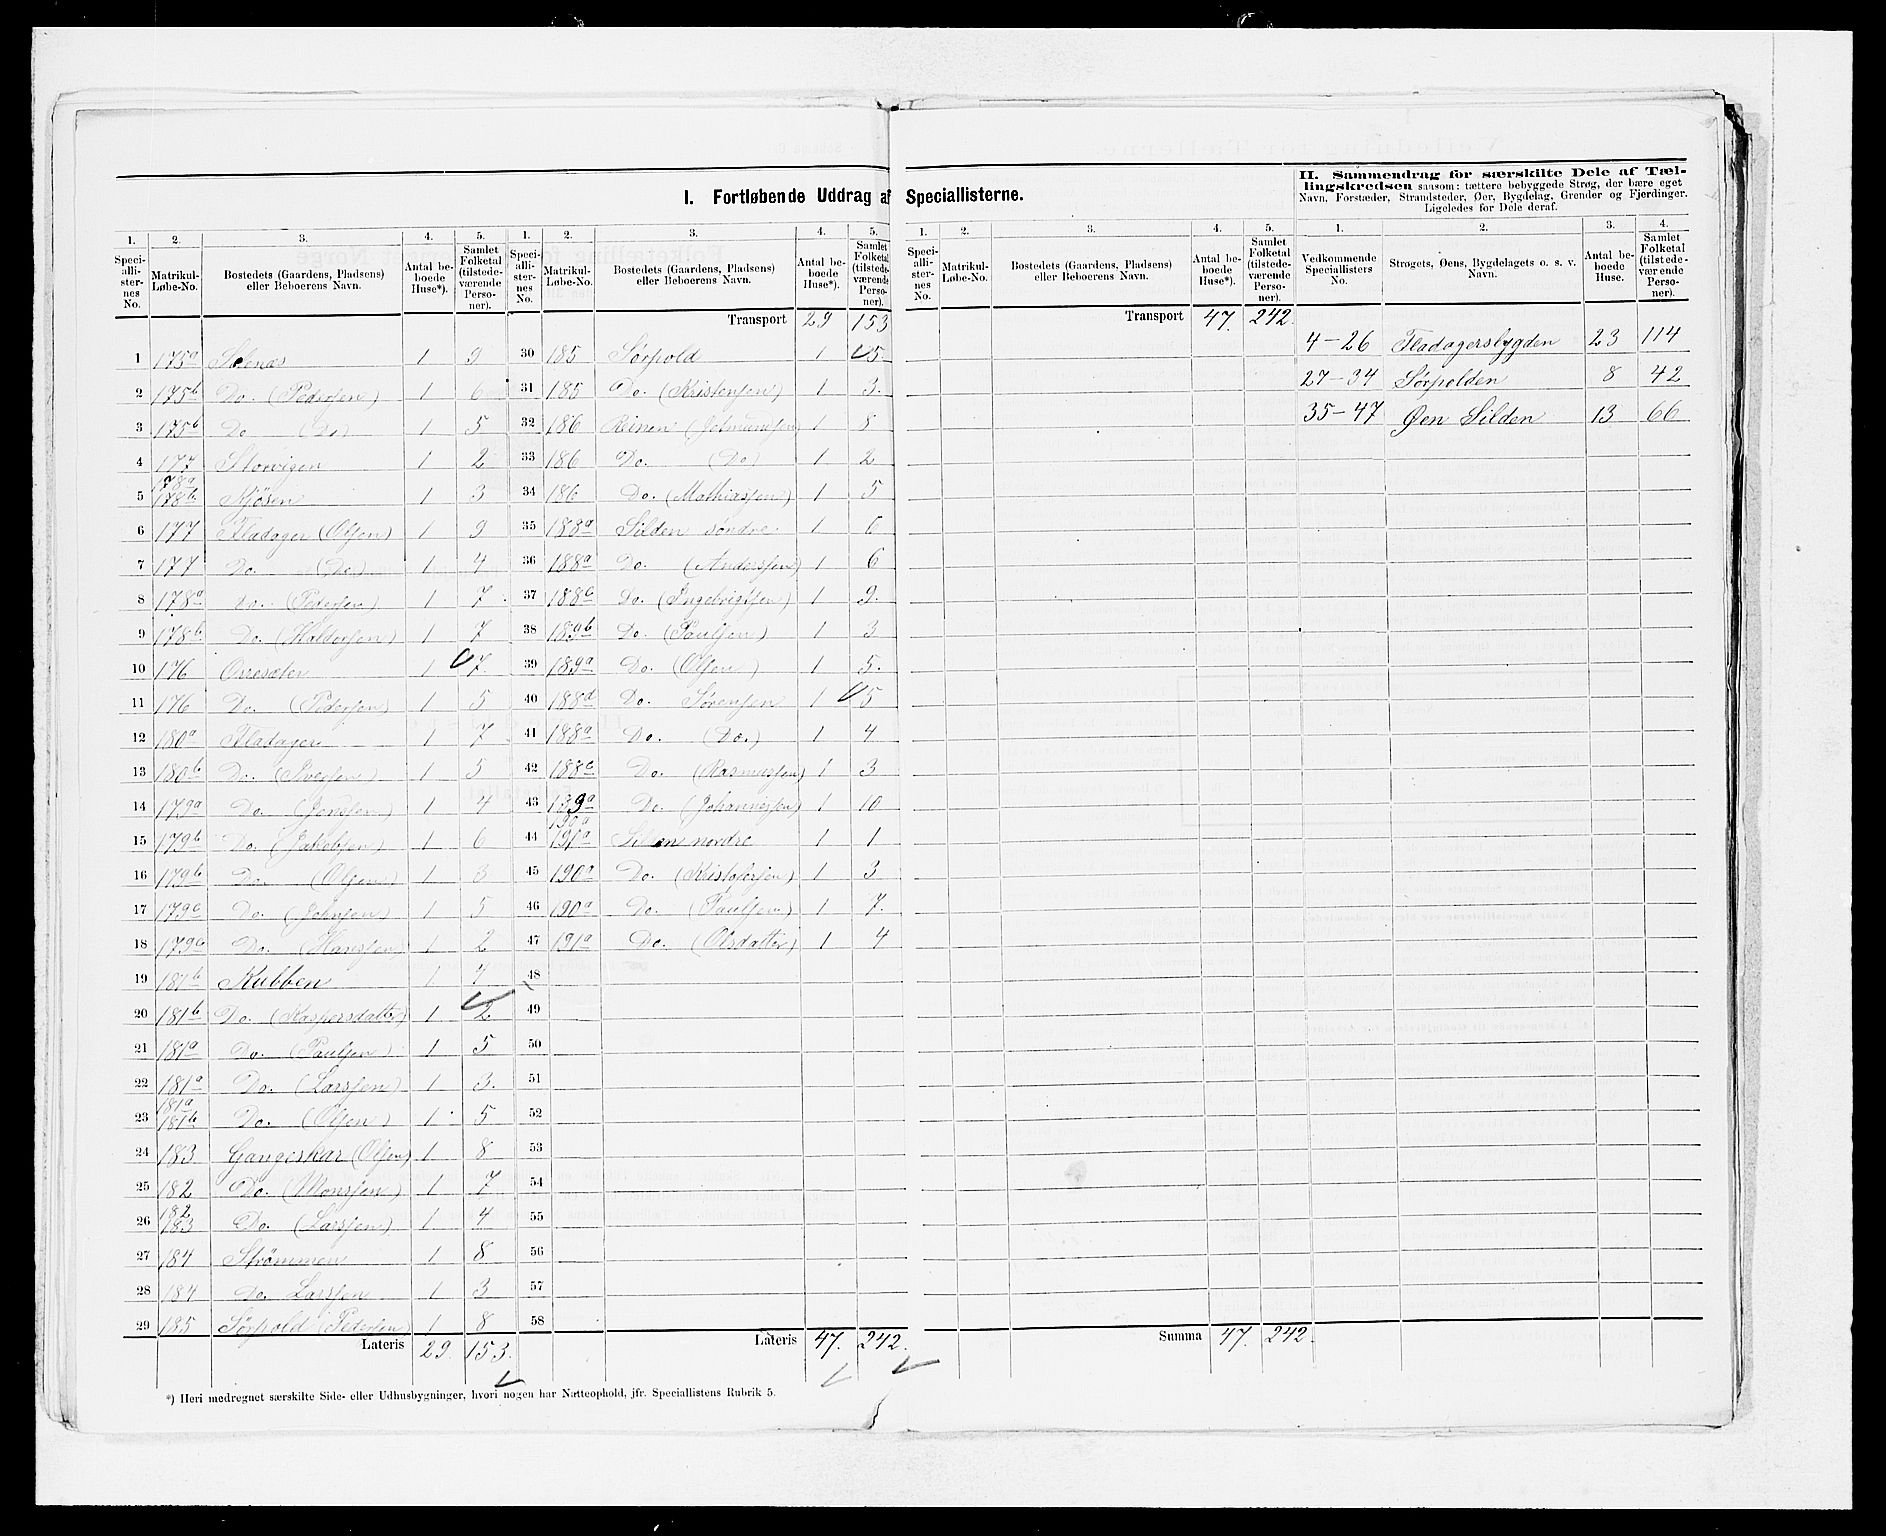 I. Fortløbende Uddrag af Speciallisterne.
II. Sammendrag for særskilte Dele af Tæl-
lingskredsen saasom: tættere bebyggede Strøg, der bære eget
Navn, Forstæder, Strandsteder, Øer, Bygdelag, Grender og Fjerdinger.
Ligeledes for Dele deraf.
1. 2. 3. 4. 5. 1. 2. 3. 4. 5. 1. 2. 3. 4. 5. 1. 2. 3. 4.
Speci-alli-ster-nes No. Matrikul-Løbe-No. Bostedets (Gaardens, Pladsens) eller Beboerens Navn. Antal be-boede Huse*). Samlet Folketal (tilstede-værende Perso-ner).
Speci-alli-ster-nes No. Matrikul-Løbe-No. Bostedets (Gaardens, Pladsens) eller Beboerens Navn. Antal be-boede Huse*). Samlet Folketal (tilstede-værende Perso-ner).
Speci-alli-ster-nes No. Matrikul-Løbe-No. Bostedets (Gaardens, Pladsens) eller Beboerens Navn. Antal be-boede Huse*). Samlet Folketal (tilstede-værende Perso-ner).
Vedkommende Speciallisters No. Strøgets, Øens, Bygdelagets o. s. v. Navn. Antal be-boede Huse. Samlet Folketal (tilstede-værende Perso-ner).
1 175a 1 9
2 175b Do. (Pedersen) 1 6
3 175b Do (Do) 1 5
4 177 Storvigen 1 2
5 178a 178b Kjösen 1 3
6 177 Fladager (Olsen) 1 9
7 177 Do. (Do.) 1 4
8 178a Do. (Pedersen) 1 7
9 178b Do. (Haldorsen) 1 7
10 176 1 7
11 176 Do. (Pedersen) 1 5
12 180a Fladager 1 7
13 180b Do. 1 5
14 179a Do. (Jensen) 1 4
15 179b Do. (Jakobsen) 1 6
16 179b Do. (Olsen) 1 3
17 179c Do. (Johnsen) 1 5
18 179c Do. (Hansen) 1 2
19 181b Kubben 1 7
20 181b Do. (Kaspersdatter) 1 2
21 181a Do. (Paulsen) 1 5
22 181a Do. (Larssen) 1 3.
23 181a 181b Do. (Olsen) 1 5
24 183 Gangeskar (Olsen) 1 8
25 182 Do. (Monsen) 1 7
26 182 183 Do. (Larssen) 1 4
27 184 Strömmen 1 8
28 184 Do. Larssen 1 3
29 185 Sörpold (Pedersen) 1 8
Lateris 29. 153.
Transport 29 153
30 185 Sørpold 1 5
31 185 Do. (Kristensen) 1 3.
32 186 Reinen 1 8
33 186 Do. (Do) 1 2
34 186 Do. (Mathiassen) 1 5
35 188a Silden søndre 1 6
36 188a Do. (Anderssen) 1 6
37 188c Do. (Ingebrigtsen) 1 9.
38 189b Do. (Paulsen) 1 3
39 189a Do. (Olsen) 1 5.
40 188d Do. Sørensen 1 5
41 188a Do. (Do.) 1 4
42 188c Do. (Rasmussen) 1 3
43 189a Do. (Johannessen) 1 10
44 190a 191a Silden nordre 1 1
45 190a Do. (Kristofersen) 1 3
46 190a Do. (Paulsen) 1 7.
47 191a Do. (Olsdatter) 1 4
48
49
50
51
52
53
54
55
56
57
58
Lateris 47. 242.
Transport 47. 242.
Summa 47. 242.
4-26 Fladagersbygden 23 114
27-34 Sørpolden 8 42
35-47 Øen Silden 13 66
*) Heri medregnet særskilte Side- eller Udhusbygninger, hvori nogen har Natteophold, jfr. Speciallistens Rubrik 5.